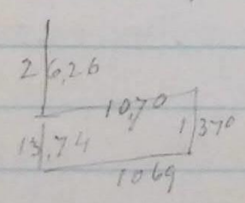 26,26
10,70
13,74
1370
1069